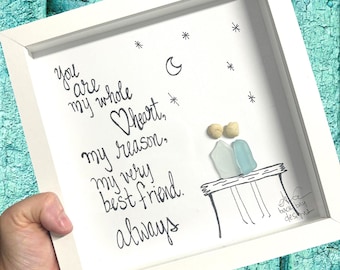 you
are
my whole
heart,
my reason,
my very
best friend.
always